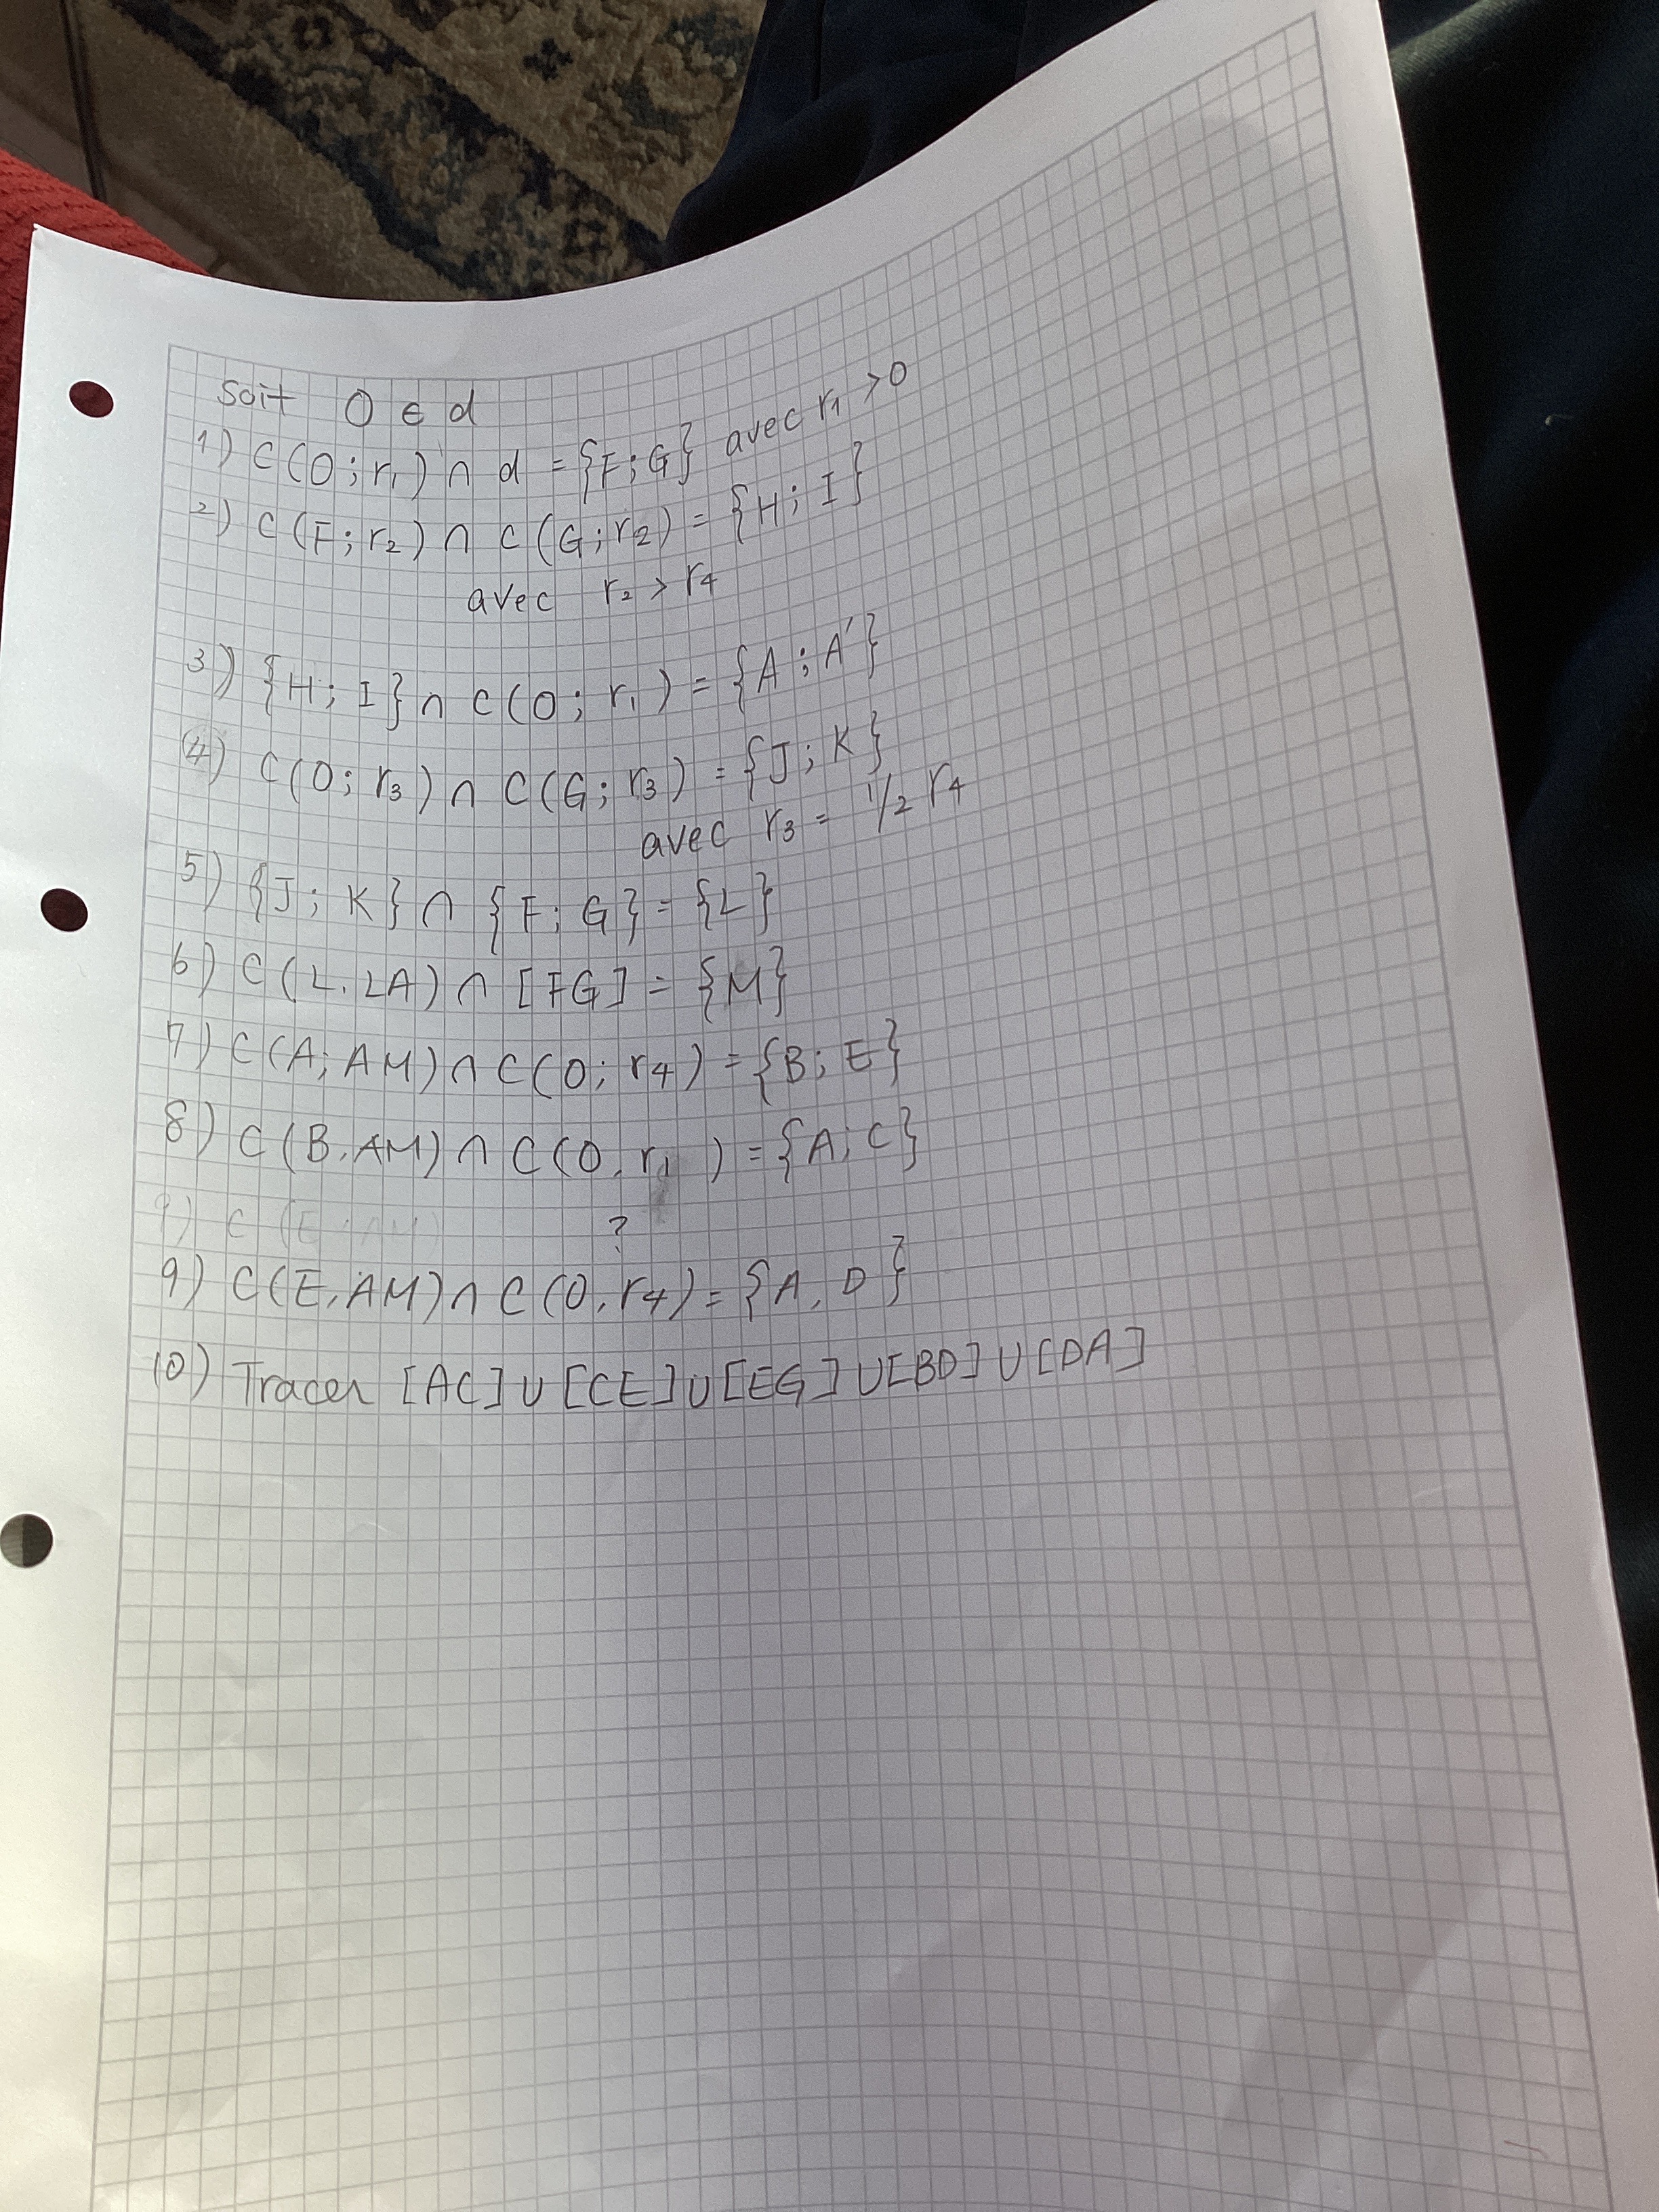 Soit O ∈ d
1) C(O; r₁) ∩ d = {F; G} avec r₁ > 0
2) C(F; r₂) ∩ C(G; r₂) = {H; I}
avec r₂ > r₄
3) {H; I} ∩ C(O; r₁) = {A; A'}
(4) C(O; r₃) ∩ C(G; r₃) = {J; K}
avec r₃ = 1/2 r₄
5) {J; K} ∩ {F; G} = {L}
6) C(L, LA) ∩ [FG] = {M}
7) C(A; AM) ∩ C(O; r₄) = {B; E}
8) C(B, AM) ∩ C(O, r₁ ) = {A; C}
9) C (E; AM) ?
9) C(E, AM) ∩ C(O, r₄) = {A, D}
10) Tracer [AC] ∪ [CE] ∪ [EG] ∪ [BD] ∪ [DA]